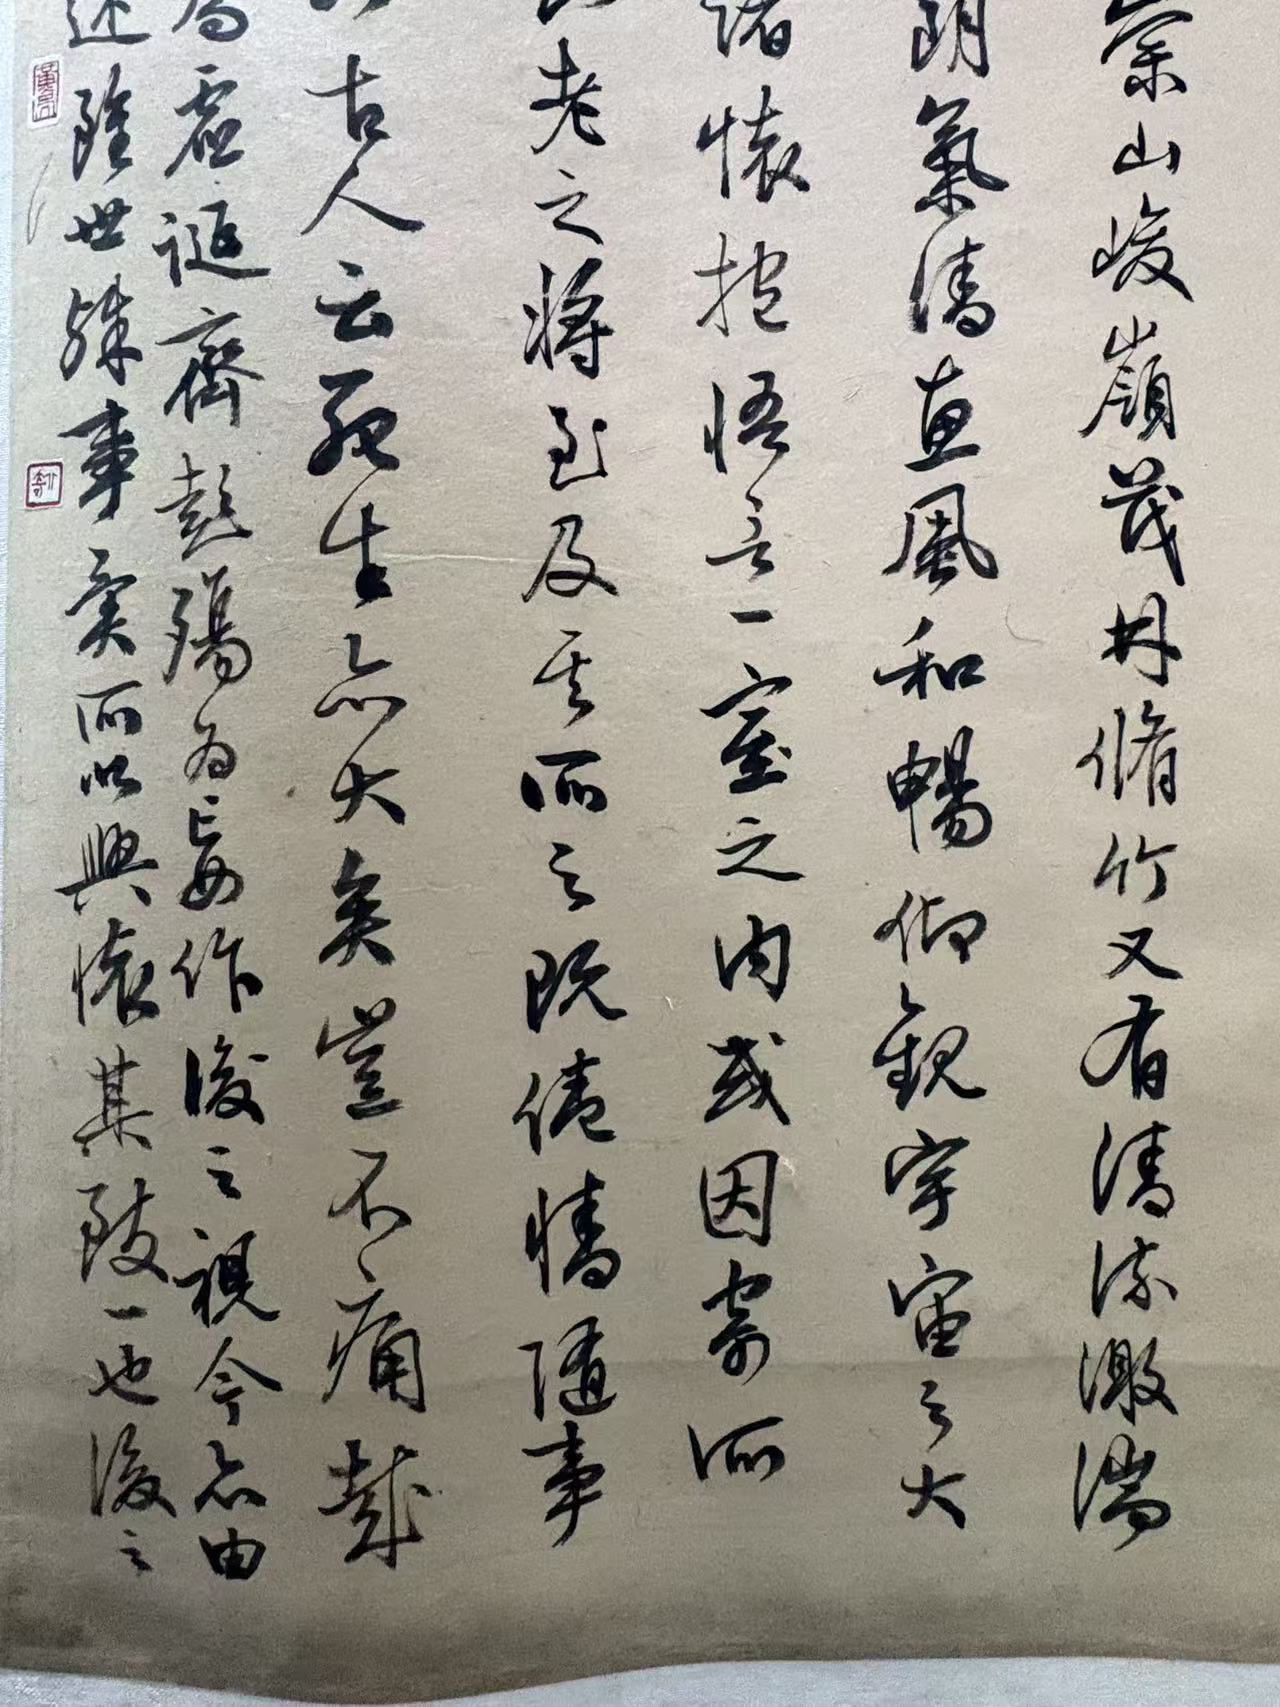 崇山峻嶺茂林脩竹又有清流激湍
朗氣清惠風和暢仰觀宇宙之大
諸懷抱悟言一室之內或因寄所
老之將至及其所之既倦情隨事
古人云死生亦大矣豈不痛哉
為虛誕齊彭殤為妄作後之視今亦由
述雖世殊事異所以興懷其致一也後之